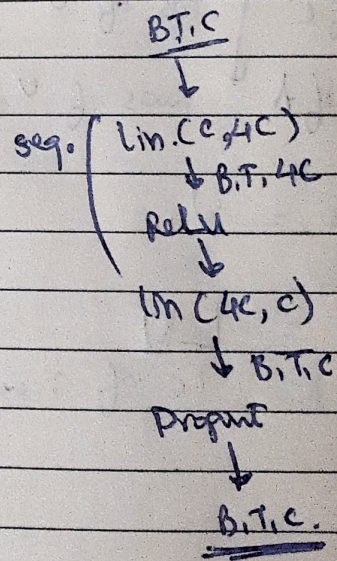 B,T,C
↓
seq. ( Lin.(C,4C)
↓ B,T,4C
Relu
↓
lin (4C, C)
↓ B,T,C
Dropout
↓
B,T,C.